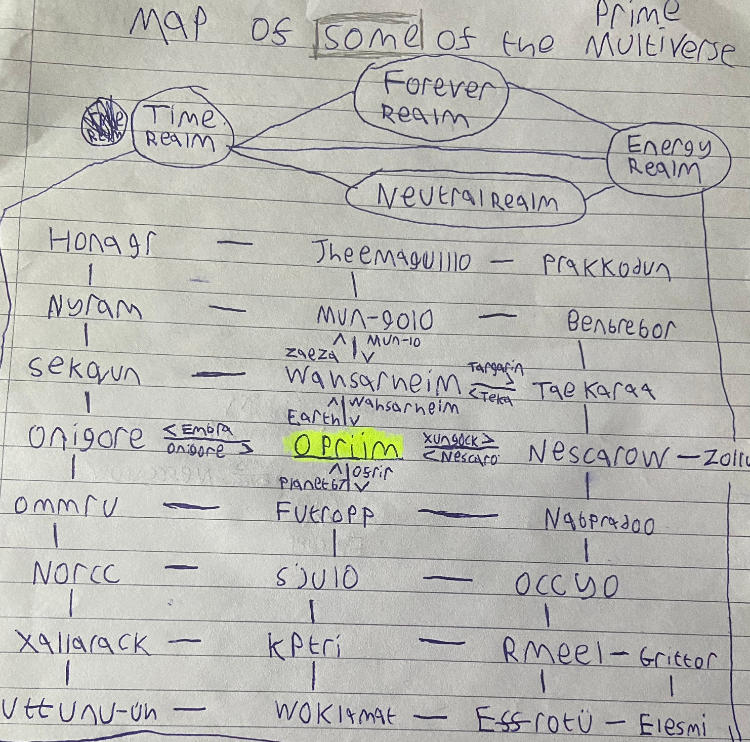 MAP OF SOME of the Prime Multiverse
Forever Realm
Time Realm
Energy Realm
Neutral Realm
Honagr — Jheemaguillo — Prakkodun
Nyram — Mun-golo — Bengregor
zaeza ^ | v Mun-10
Sekqun — Wahsarheim Targarin > < Teka Taekaraq
Earth ^ | v Wahsarheim
Onigore < Embra Onigore > Opriim Xungock > < Nescaro Nescarow — Zollu
Planet67 ^ | v Osrir
Ommru — Futropp — Nqbpradoo
Norcc — Sjulo — Occyo
Xallarack — Kptri — Rmeel — Grittor
Uttunu-uh — Woklamat — Ess-rotü — Elesmi